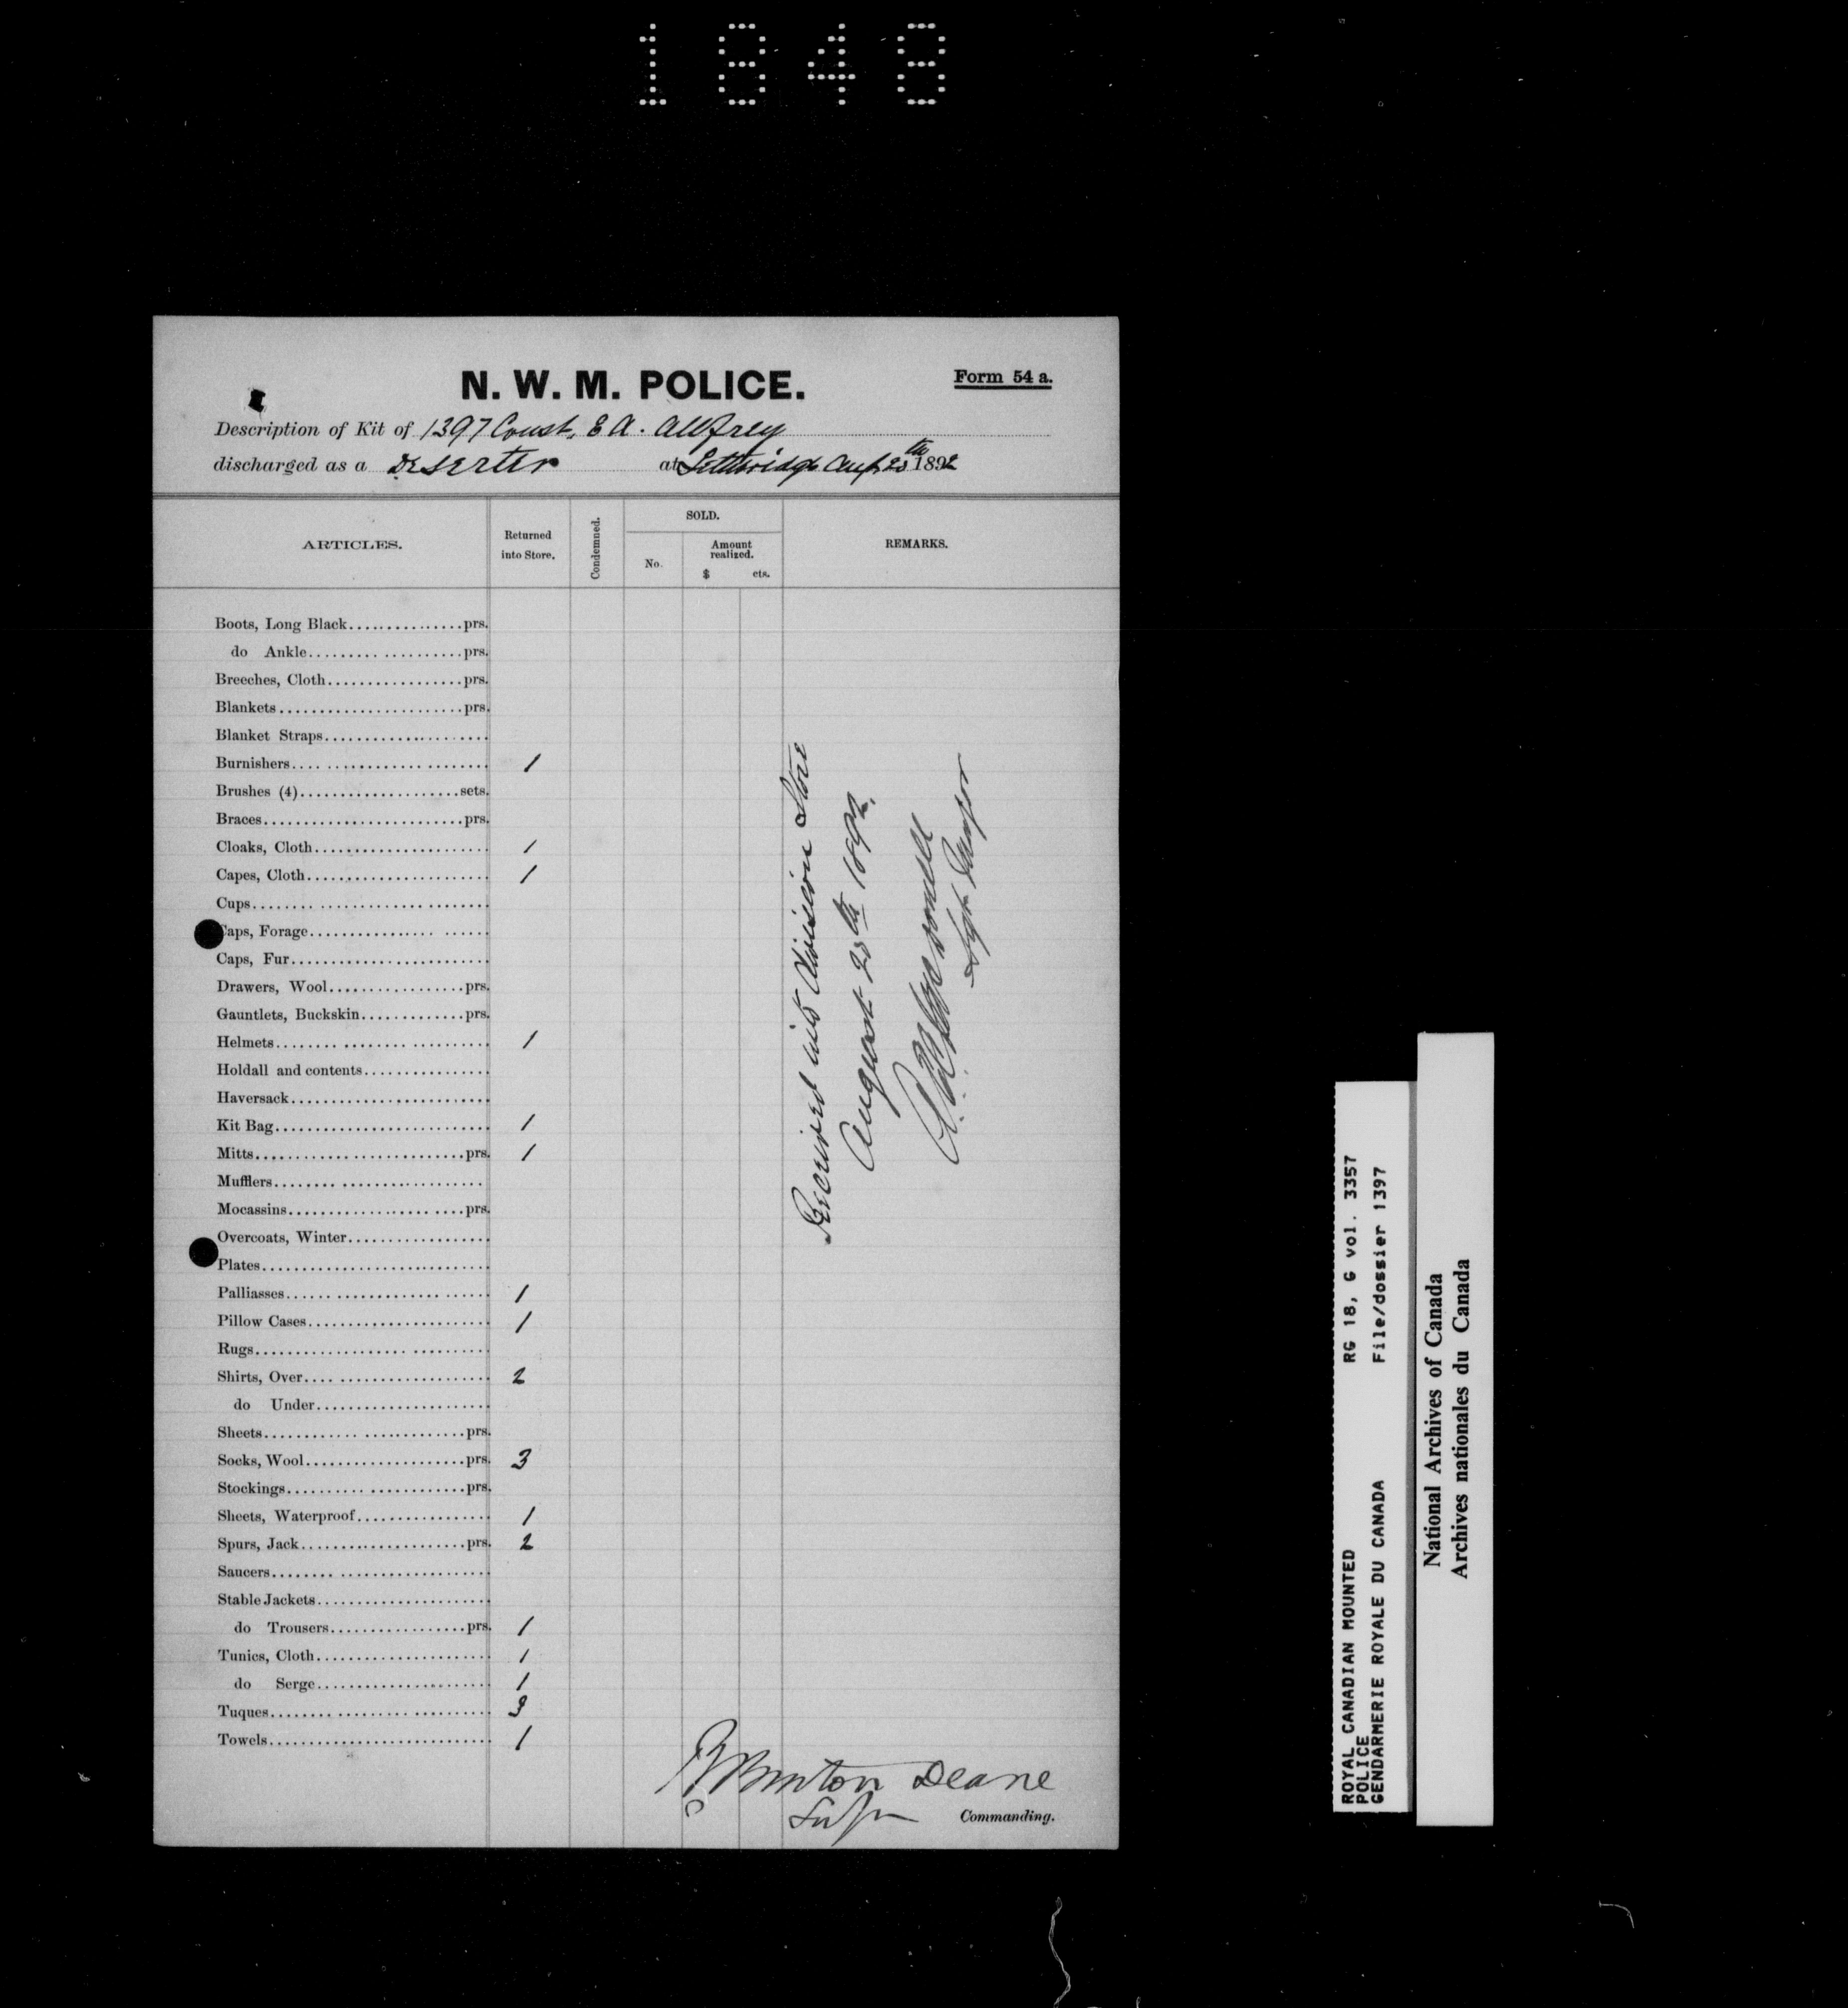 1848
N. W. M. POLICE.
Form 54 a.
Description of Kit of 1397 Const. E A. Allfrey
discharged as a Deserter at Lethbridge Aug 20th 1892
ARTICLES.
Returned into Store.
Condemned.
SOLD.
No.
Amount realized.
$ cts.
REMARKS.
Boots, Long Black...............prs.
do Ankle...................prs.
Breeches, Cloth.................prs.
Blankets.......................prs.
Blanket Straps.....................
Burnishers......................... 1
Brushes (4)....................sets.
Braces.........................prs.
Cloaks, Cloth...................... 1
Capes, Cloth....................... 1
Cups..............................
Caps, Forage.......................
Caps, Fur.........................
Drawers, Wool.................prs.
Gauntlets, Buckskin.............prs.
Helmets........................... 1
Holdall and contents................
Haversack.........................
Kit Bag........................... 1
Mitts..........................prs. 1
Mufflers..........................
Mocassins......................prs.
Overcoats, Winter..................
Plates.............................
Palliasses.......................... 1
Pillow Cases....................... 1
Rugs..............................
Shirts, Over....................... 2
do Under......................
Sheets.........................prs.
Socks, Wool....................prs. 3
Stockings......................prs.
Sheets, Waterproof................. 1
Spurs, Jack.....................prs. 2
Saucers...........................
Stable Jackets......................
do Trousers.................prs. 1
Tunics, Cloth...................... 1
do Serge...................... 1
Tuques............................ 3
Towels............................ 1
Received into Division Store
August 20th 1892.
Sergt Major
R Burton Deane
Supt Commanding.
ROYAL CANADIAN MOUNTED RG 18, G vol. 3357
POLICE
GENDARMERIE ROYALE DU CANADA File/dossier 1397
National Archives of Canada
Archives nationales du Canada